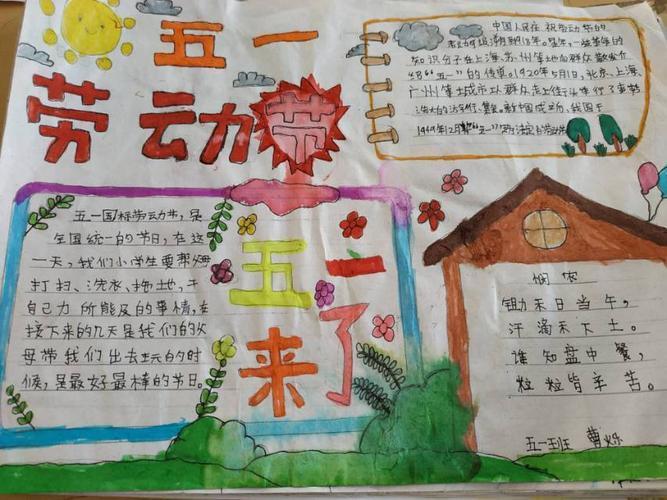 五一
劳动节
中国人民庆祝劳动节的
活动可追溯到1918年。是年,一些革命的
知识分子在上海、苏州等地向群众散发介
绍“五一”的传单。1920年5月1日,北京、上海、
广州等城市
群众走上街
行了
1949年12月
五一国标劳动节,是
全国统一的节日,在这
一天,我们小学生要帮妈
打扫、洗衣、拖地,干
自己力所能及的事情,在
接下来的几天是我们的父
母带我们出去玩的时
候,是最好最棒的节日。
五一
来了
悯农
锄禾日当午,
汗滴禾下土。
谁知盘中餐,
粒粒皆辛苦。
五一班 曹烁